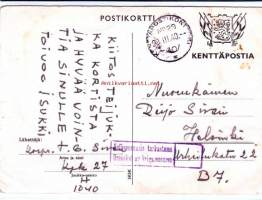 POSTIKORTTI
KENTTÄPOSTIA
KIITOS TEIJU:
KA KORTISTA
JA HYVÄÄ VOIN.
TIA SINULLE t.
TOIVOO ISUKKI
Lähettäjä:
Korpr. E. Sirén
Kpk 27
H
1040
Nuorukainen
Reijo Sirén
Helsinki
Urheilukatu 22
B 7.